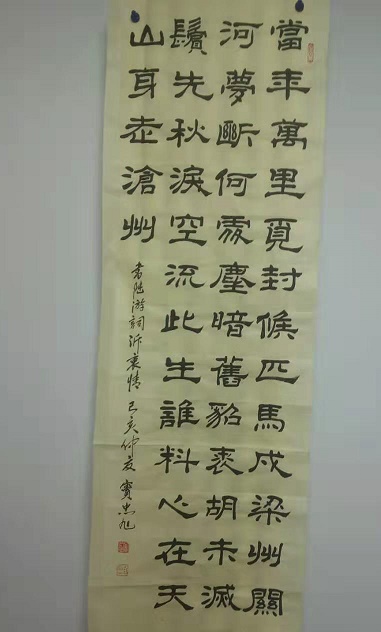 當年萬里覓封侯匹馬戍梁州關
河夢斷何處塵暗舊貂裘胡未滅
鬢先秋淚空流此生誰料心在天
山身老滄州
書陸游詞訴衷情 己亥仲夏 竇忠旭